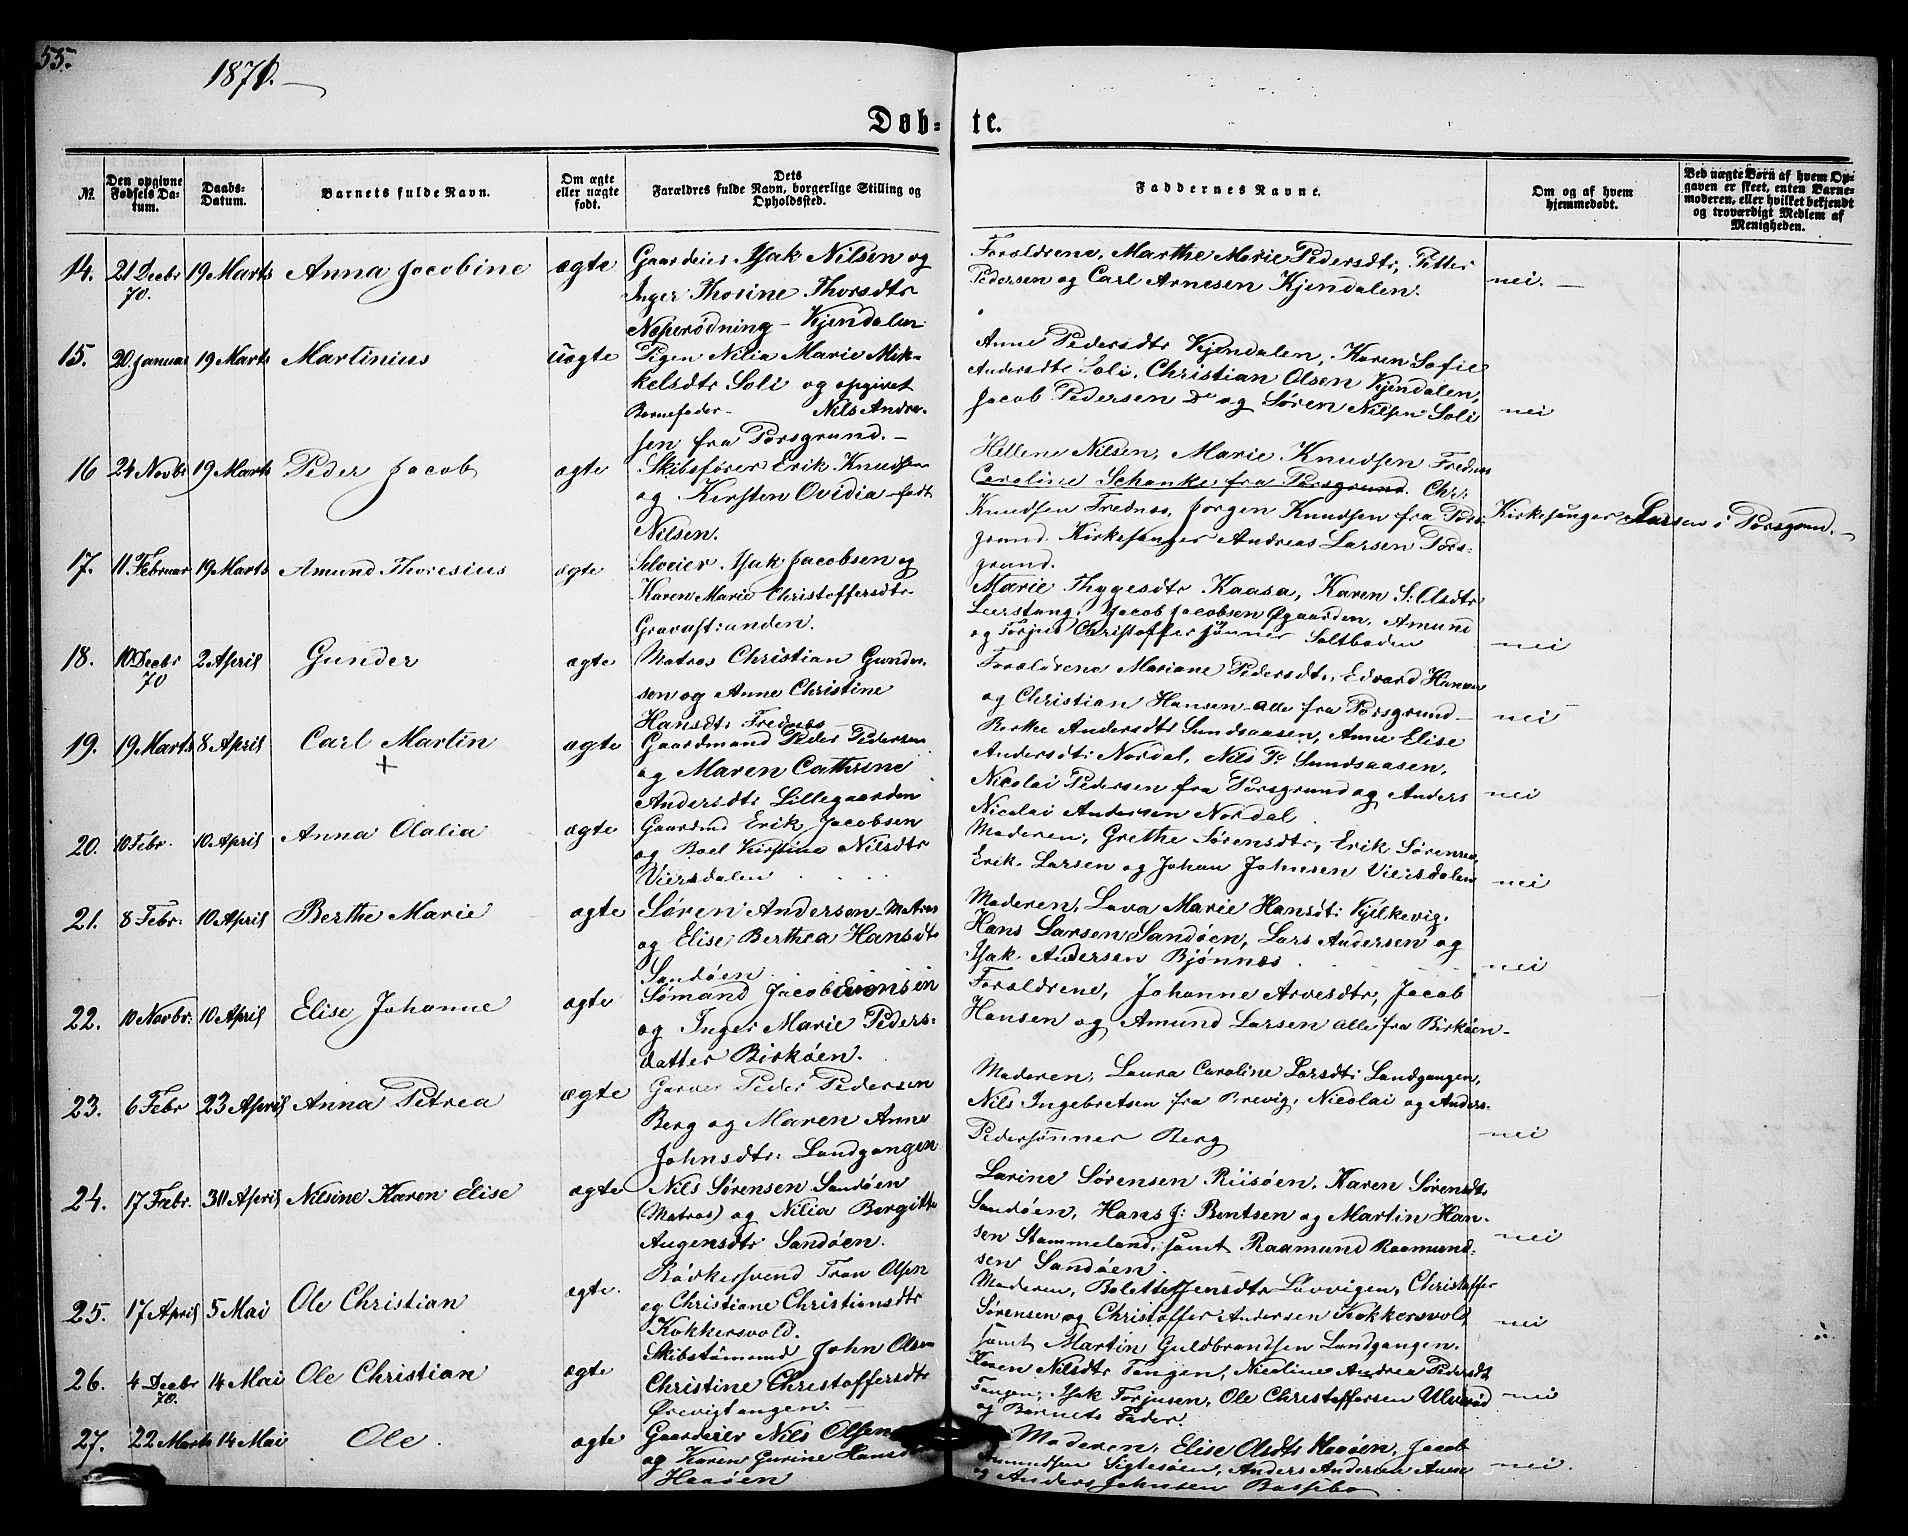 55.
1871.
Døb-te.
No.
Den opgivne Fødsels Datum.
Daabs-Datum.
Barnets fulde Navn.
Om ægte eller uægte født.
Dets Forældres fulde Navn, borgerlige Stilling og Opholdssted.
Faddernes Navne.
Om og af hvem hjemmedøbt.
Ved uægte Børn af hvem Opgaven er skeet, enten Barnemoderen, eller hvilket bekjendt og troværdigt Medlem af Menigheden.
14. 21 Decbr 70. 19 Marts Anna Jacobine ægte
Gaardeier Isak Nilsen og
Inger Thorine Thorsdtr
Næperødning - Kjendalen
Forældrene, Marthe Marie Pedersdtr, Petter
Pedersen og Carl Arnesen Kjendalen.
nei.
15. 20 Januar 19 Marts Martinius uægte
Pigen Nilia Marie Mik-
kelsdtr Soli og opgivet
Barnefader - Nils Andre-
sen fra Porsgrund. -
Anne Pedersdtr Kjendalen, Karen Sofie
Andersdtr Soli, Christian Olsen Kjendalen,
Jacob Pedersen Do og Søren Nilsen Soli
nei
16 24 Novbr 19 Marts Peder Jacob ægte
Skibsfører Erik Knudsen
og Kirsten Ovidia født
Nilsen.
Hellene Nilsen, Marie Knudsen Frednes
Caroline Schanke fra Porsgrund. Chr:
Knudsen Frednes, Jørgen Knudsen fra Pors-
grund. Kirkesanger Andreas Larsen Pors-
grund.
Kirkesanger Larsen i Porsgrund. -
17. 11 Februar 19 Marts Amund Thoresius ægte
Selveier Isak Jacobsen og
Karen Marie Christoffersdtr
Gravastranden.
Marie Thygesdtr Kaasa, Karen S: Olsdtr
Leerstang, Jacob Jacobsen Øgaarden, Amund
og Torjus Christoffersønner Saltboden
nei
18. 10 Decbr 70 2 April Gunder ægte
Matros Christian Gunder-
sen og Anne Christine
Hansdtr Frednes -
Forældrene Mariane Pedersdtr, Edvard Hansen
og Christian Hansen - alle fra Porsgrund -
nei
19. 19 Marts 8 April Carl Martin + ægte
Gaardmand Peder Pedersen
og Maren Cathrine
Andersdtr Lillegaarden
Birthe Andersdtr Sundsaasen, Anne Elise
Andersdtr Nordal, Nils P. Sundsaasen,
Nicolai Pedersen fra Porsgrund og Anders
Nicolai Andersen Nordal
nei
20. 10 Febr. 10 April Anna Olalia ægte
Gaardmd Erik Jacobsen
og Boel Kirstine Nilsdtr
Viersdalen
Moderen, Grethe Sørensdtr, Erik Sørensen,
Erik Larsen og Johan Johnsen Viersdalen
nei
21. 8 Febr: 10 April Berthe Marie ægte
Søren Andersen - Matros
og Elise Berthea Hansdtr
Sandøen.
Moderen, Lava Marie Hansdtr Kjelkevig,
Hans Larsen Sandøen, Lars Andersen og
Isak Andersen Bjønnes
nei
22. 10 Novbr: 10 April Elise Johanne ægte
Sømand Jacob Evensen
og Inger Marie Peders-
datter Birkøen.
Forældrene, Johanne Arvesdtr, Jacob
Hansen og Amund Larsen alle fra Birkøen -
23. 6 Febr 23 April Anna Petrea ægte
Garver Peder Pedersen
Berg og Maren Anne
Johnsdtr: Landgangen
Moderen, Laura Caroline Larsdtr: Landgangen,
Nils Ingebretsen fra Brevig, Nicolai og Anders
Pedersønner Berg
nei
24. 17 Febr. 30 April Nilsine Karen Elise ægte
Nils Sørensen Sandøen
(Matros) og Nilia Bergitte
Augensdtr Sandøen.
Larine Sørensen Riisøen, Karen Sørensdtr
Sandøen, Hans J: Bentsen og Martin Han-
sen Stammeland, samt Raamund Raamund-
sen Sandøen.
nei
25. 17 April 5 Mai Ole Christian ægte.
Bødkersvend Tron Olsen
og Christiane Christiansdtr
Kokkersvold.
Moderen, Bolette Jensdtr Løvvigen, Christoffer
Sørensen og Christoffer Andersen Kokkersvold,
samt Martin Guldbrandsen Landgangen.
nei
26. 4 Decbr 70. 14 Mai Ole Christian ægte
Skibstømmmd John Olsen
Christine Christoffersdtr
Ørevigtangen.
Karen Nilsdtr Tangen, Nicoline Andrea Pedersdtr
Tangen, Isak Torjusen, Ole Christoffersen Ulverød
og Barnets Fader.
nei
27. 22 Marts 14 Mai Ole. ægte
Gaardeier Nils Olsen
og Karen Gurine Hansdtr
Haaøen
Moderen, Elise Olsdtr Haaøen, Jacob
Amundsen Sigtesøen, Anders Andersen Auen
og Anders Johnsen Bassebo
nei.